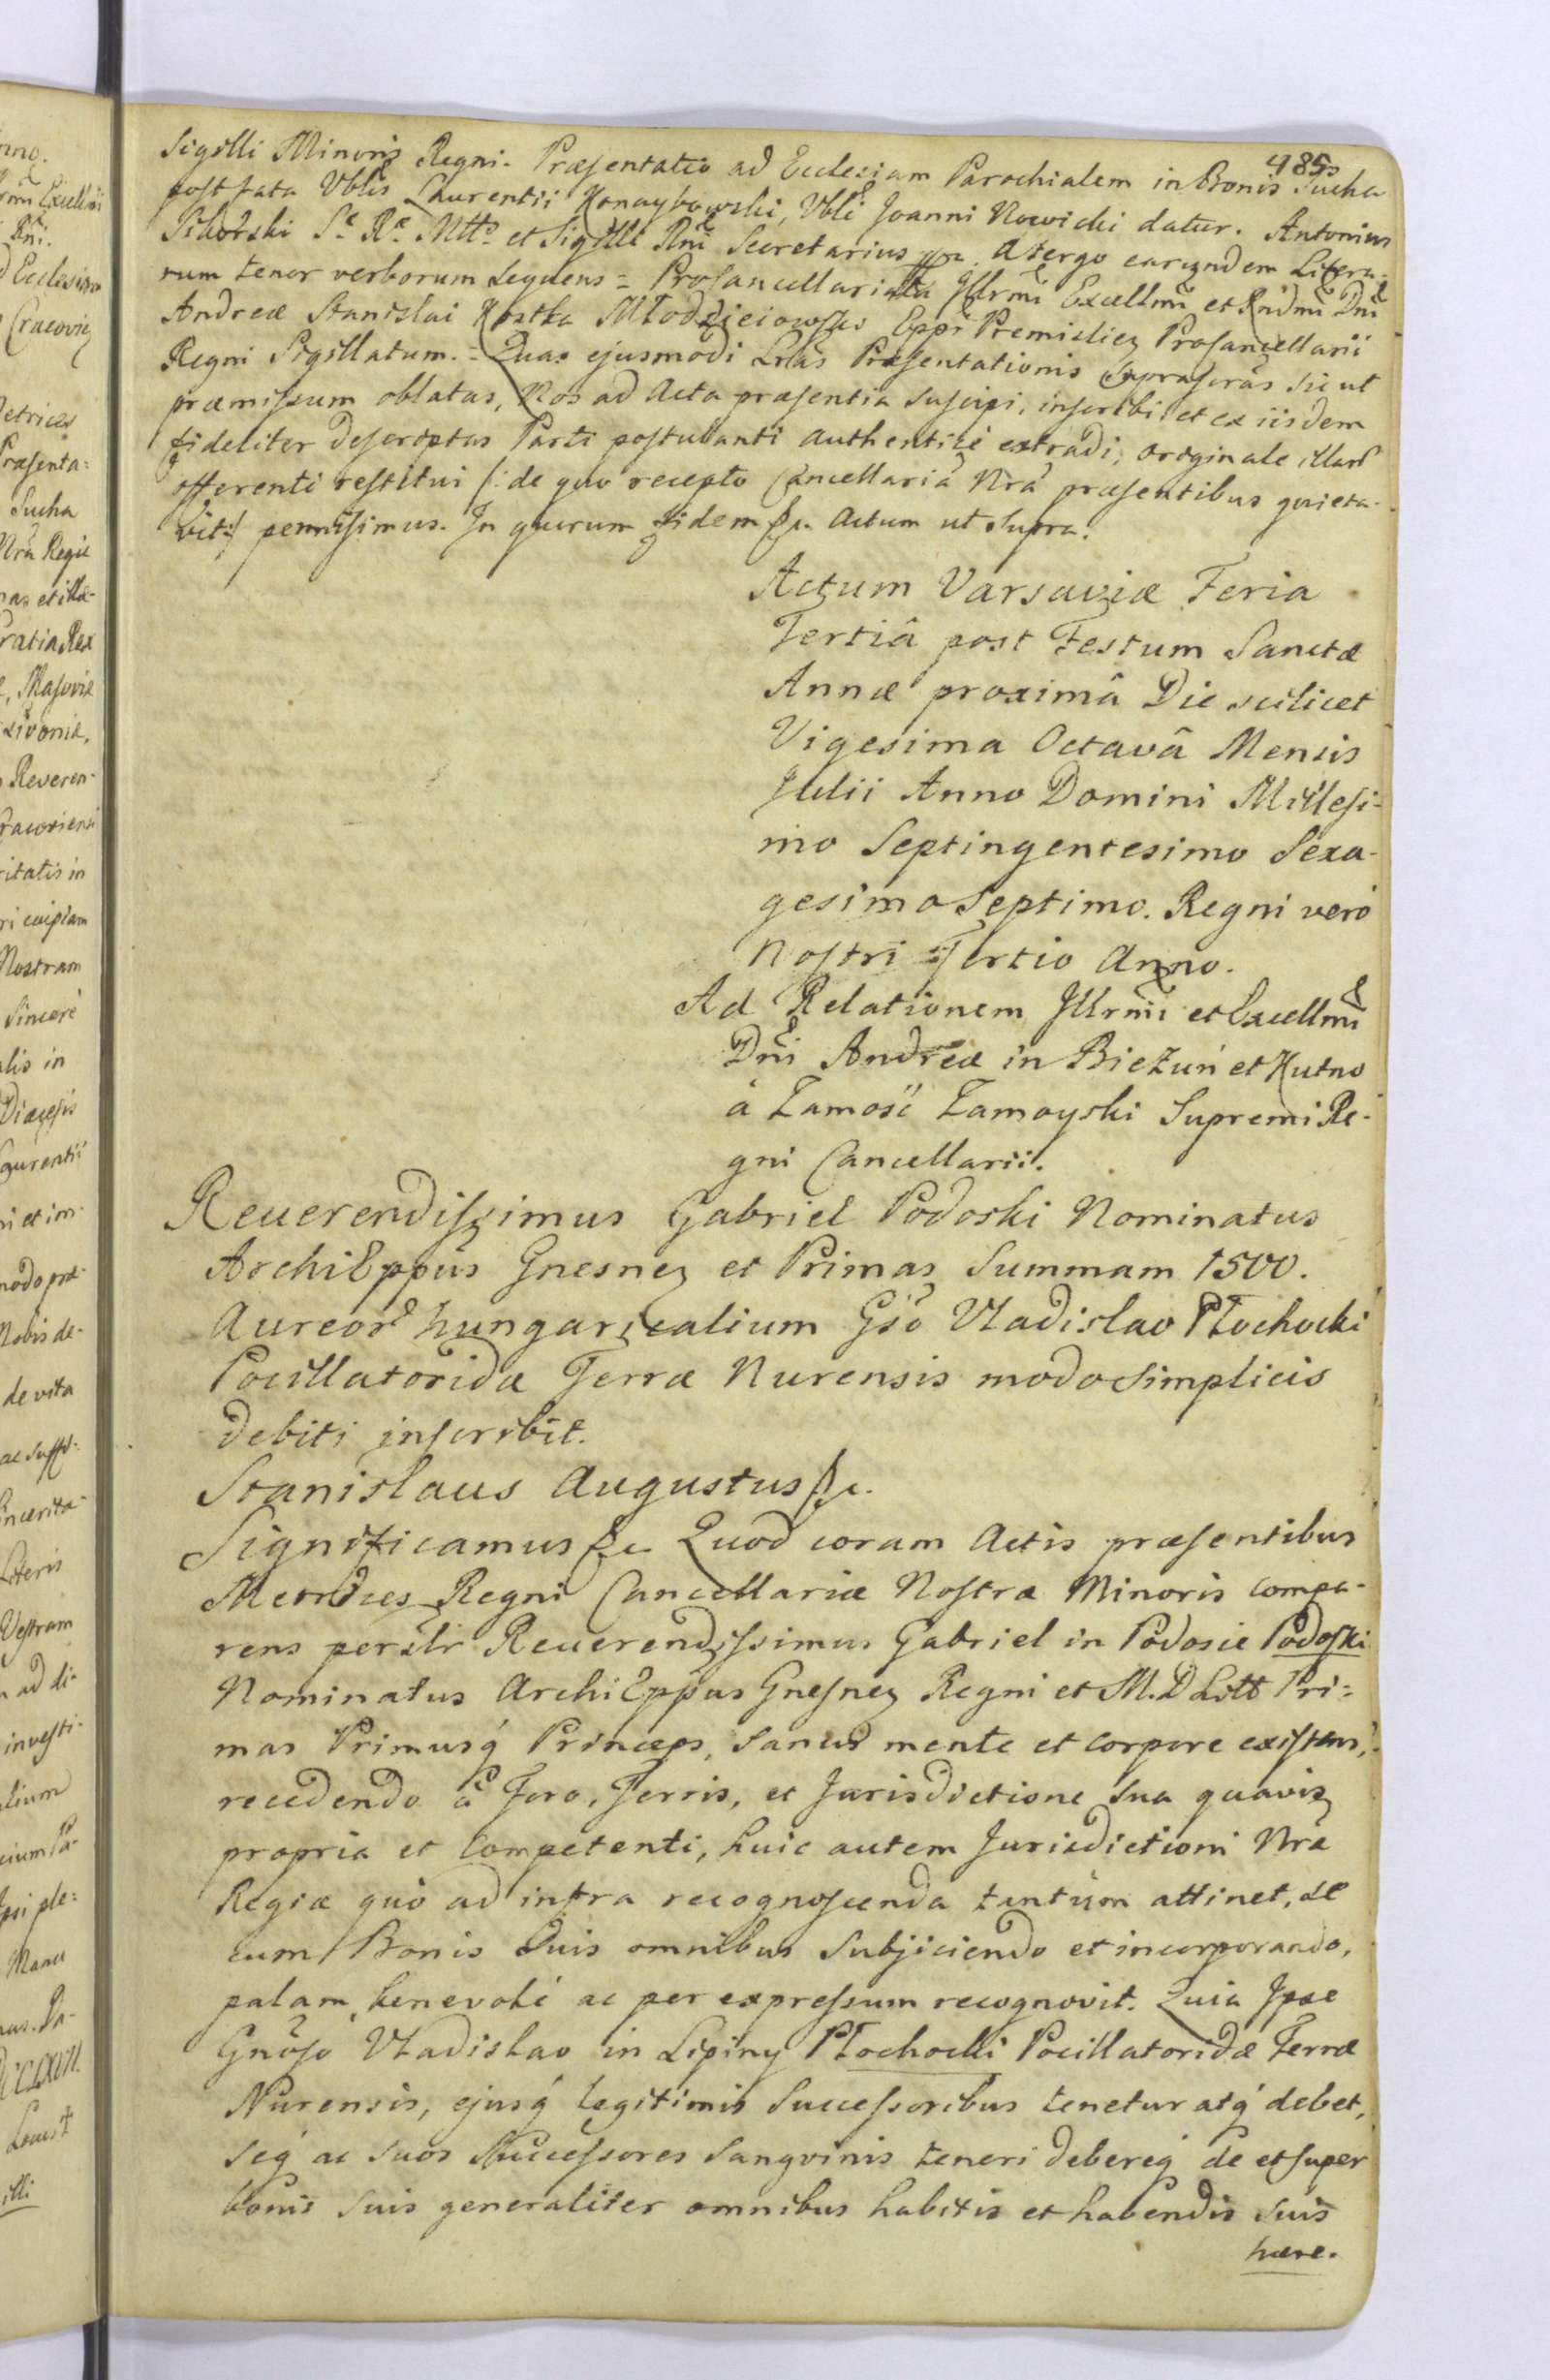 485
Sigilli Minoris Regni. Præsentatio ad Ecclesiam Parochialem in Bonis Sucha
post fata Vblis Laurentii Konaybowski, Vbli Joanni Nowicki datur. Antonius
Sikorski Sæ Ræ Mttis et Sigilli Rni Secretarius mpa. A tergo earundem Litera-
rum tenor verborum sequens = Procancellariatu Illrmi Excellmi et Rndmi Dni
Andreæ Stanislai Kostka Młodzieiowski Eppi Premislien Procancellarii
Regni Sigillatum. = Quas ejusmodi Lras Præsentationis suprascras sic ut
præmissum oblatas, Nos ad Acta præsentia suscipi, inscribi et ex iisdem
fideliter descriptas Parti postulanti authentice extradi, originale illarum
offerenti restitui /: de quo recepto Cancellariâ Nrâ præsentibus quieta-
vit :/ permisimus. In quorum fidem &c. Actum ut supra.
Actum Varsaviæ Feria
Tertiâ post Festum Sanctæ
Annæ proximâ Die scilicet
Vigesima Octavâ Mensis
Julii Anno Domini Millesi-
mo Septingentesimo Sexa-
gesimo Septimo. Regni verò
Nostri Tertio Anno.
Ad Relationem Illrmi et Excellmi
Dni Andreæ in Bieżuń et Kutno
à Zamość Zamoyski Supremi Re-
gni Cancellarii.
Reuerendissimus Gabriel Podoski Nominatus
ArchiEppus Gnesnen et Primas Summam 1500.
Aureor hungaricalium Gso Vladislao Płochocki
Pocillatoridæ Terræ Nurensis modo simplicis
debiti inscribit.
Stanislaus Augustus &c.
Significamus &c. Quod coram Actis præsentibus
Metrices Regni Cancellariæ Nostræ Minoris compa-
rens persltr Reuerendissimus Gabriel in Podosie Podoski
Nominatus ArchiEppus Gnesnen Regni et M. D Litt Pri-
mas Primusq́ Princeps, sanus mente et corpore existens,
recedendo à Foro, Terris, et Jurisdictione sua quavis
propria et Competenti, huic autem Jurisdictioni Nræ
Regiæ quò ad infra recognoscenda tantùm attinet, se
cum Bonis Suis omnibus Subjiciendo et incorporando,
palam, benevolé ac per expressum recognovit. Quia Ipse
Gnoso Vladislao in Lipiny Płochocki Pocillatoridæ Terræ
Nurensis, ejusq́ legitimis Successoribus tenetur atq́ debet,
seq́ ac suos Successores Sangvinis teneri debereq́ de et super
bonis suis generaliter omnibus habitis et habendis suis
hære.